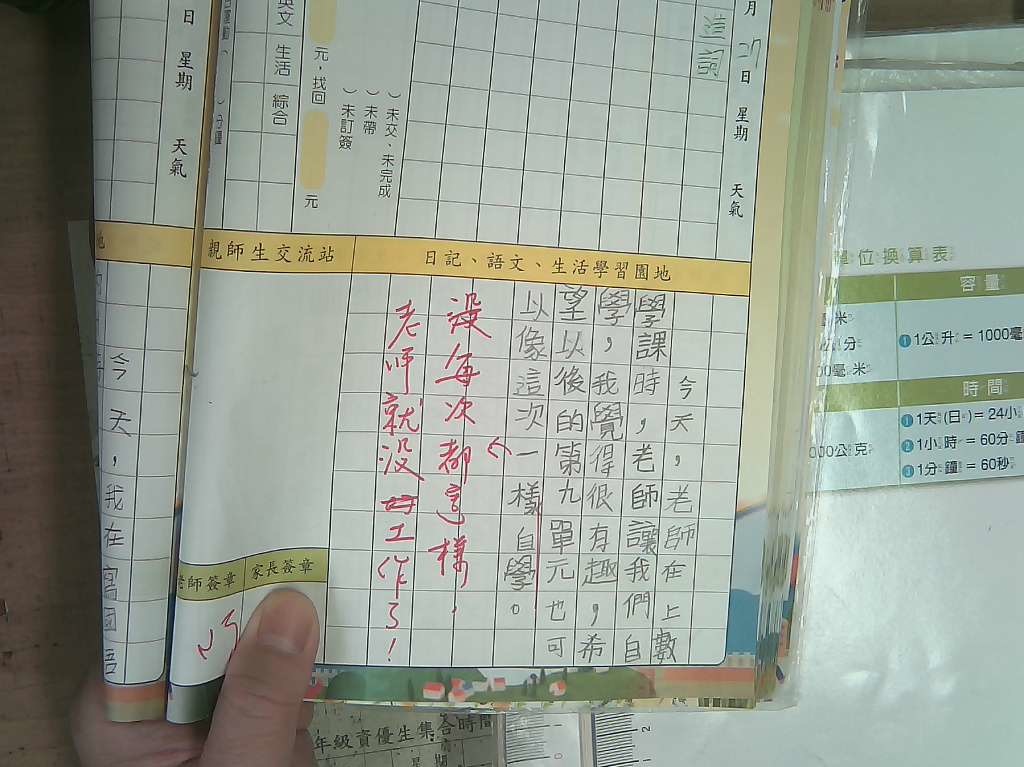 月 27 日 星期 天氣
造詞
( )未交、未完成
( )未帶
( )未訂簽
元,找回 元
英文 生活 綜合
日 星期 天氣
親師生交流站
日記、語文、生活學習園地
今天,老師在上數
學課時,老師讓我們自
學,我覺得很有趣,希
望以後的第九單元也可
以像這次一樣自學。
沒每次都這樣,
老师就没工作了!
老師簽章
家長簽章
今天,我在寫國語
單位換算表
容量
1公升=1000毫
時間
1天(日)=24小
1小時=60分鐘
1分鐘=60秒
年級資優生集合時間
星期